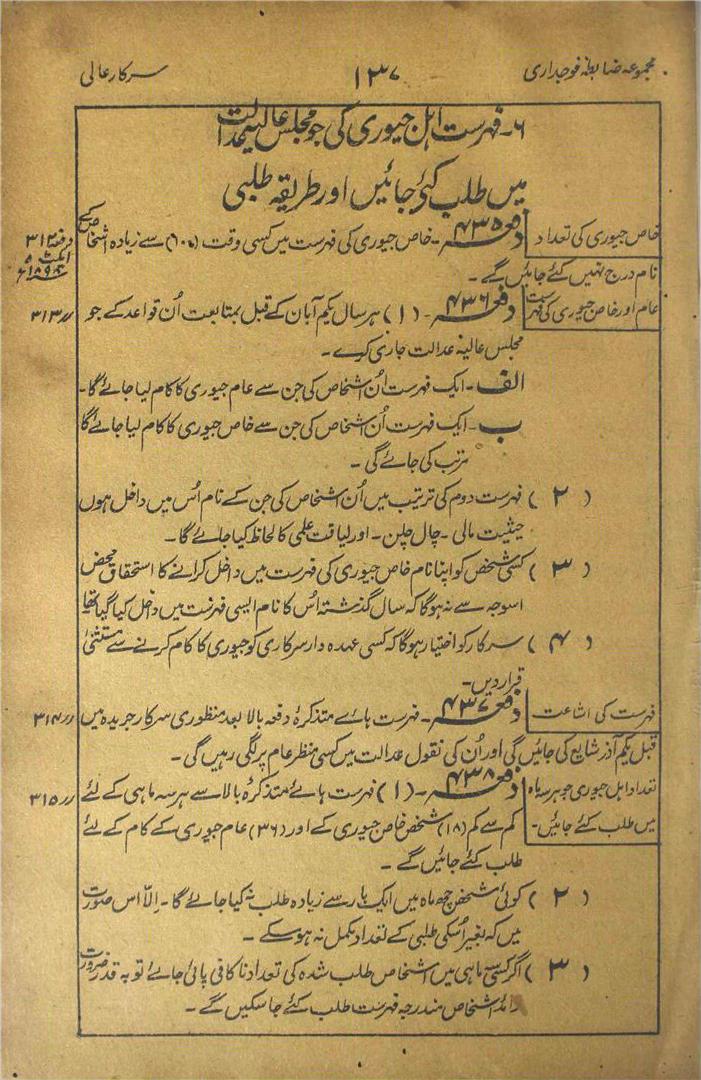 مجموعہ ضابطۂ فوجداری ۱۳۷ سرکار عالی
۶۔ فہرست اہل جیوری کی جو مجلس عالیہ عدالت
میں طلب کئے جائیں اور طریقہ طلبی
خاص جیوری کی تعداد
دفعہ ۴۳۵۔ خاص جیوری کی فہرست میں کسی وقت (۶۰۰) سے زیادہ اشخاص کے
دفعہ ۳۱۲ ایکٹ ۵ ۱۸۹۸ء
نام درج نہیں کئے جائیں گے۔
عام اور خاص جیوری کی فہرست
دفعہ ۴۳۶۔ (۱) ہر سال یکم آبان کے قبل بمتابعت اُن قواعد کے جو
〃 ۳۱۳
مجلس عالیہ عدالت جاری کرے۔
الف۔ ایک فہرست اُن اشخاص کی جن سے عام جیوری کا کام لیا جائے گا۔
ب۔ ایک فہرست اُن اشخاص کی جن سے خاص جیوری کا کام لیا جائے گا
مرتب کی جائے گی۔
(۲) فہرست دوم کی ترتیب میں اُن اشخاص کی جن کے نام اُس میں داخل ہوں
حیثیت مالی۔ چال چلن۔ اور لیاقت علمی کا لحاظ کیا جائے گا۔
(۳) کسی شخص کو اپنا نام خاص جیوری کی فہرست میں داخل کرانے کا استحقاق محض
اسوجہ سے نہ ہوگا کہ سال گذشتہ اُس کا نام ایسی فہرست میں داخل کیا گیا تھا
(۴) سرکار کو اختیار ہوگا کہ کسی عہدہ دار سرکاری کو جیوری کا کام کرنے سے مستثنیٰ
قرار دیں۔
فہرست کی اشاعت
دفعہ ۴۳۷۔ فہرست ہائے متذکرۂ دفعہ بالا بعد منظوری سرکار جریدہ میں
〃 ۳۱۴
قبل یکم آذر شایع کی جائیں گی اور اُن کی نقول عدالت میں کسی منظر عام پر لگی رہیں گی۔
تعداد اہل جیوری جو ہر سہ ماہ
میں طلب کئے جائیں۔
دفعہ ۴۳۸۔ (۱) فہرست ہائے متذکرۂ بالا سے ہر سہ ماہی کے لئے
〃 ۳۱۵
کم سے کم (۱۸) شخص خاص جیوری کے اور (۳۶) عام جیوری کے کام کے لئے
طلب کئے جائیں گے۔
(۲) کوئی شخص چھ ماہ میں ایک بار سے زیادہ طلب نہ کیا جائے گا۔ اِلّا اس صورت
میں کہ بغیر اُسکی طلبی کے تعداد مکمل نہ ہو سکے۔
(۳) اگر کسی سہ ماہی میں اشخاص طلب شدہ کی تعداد نا کافی پائی جائے تو بہ قدر ضرورت
زائد اشخاص مندرجہ فہرست طلب کئے جا سکیں گے۔